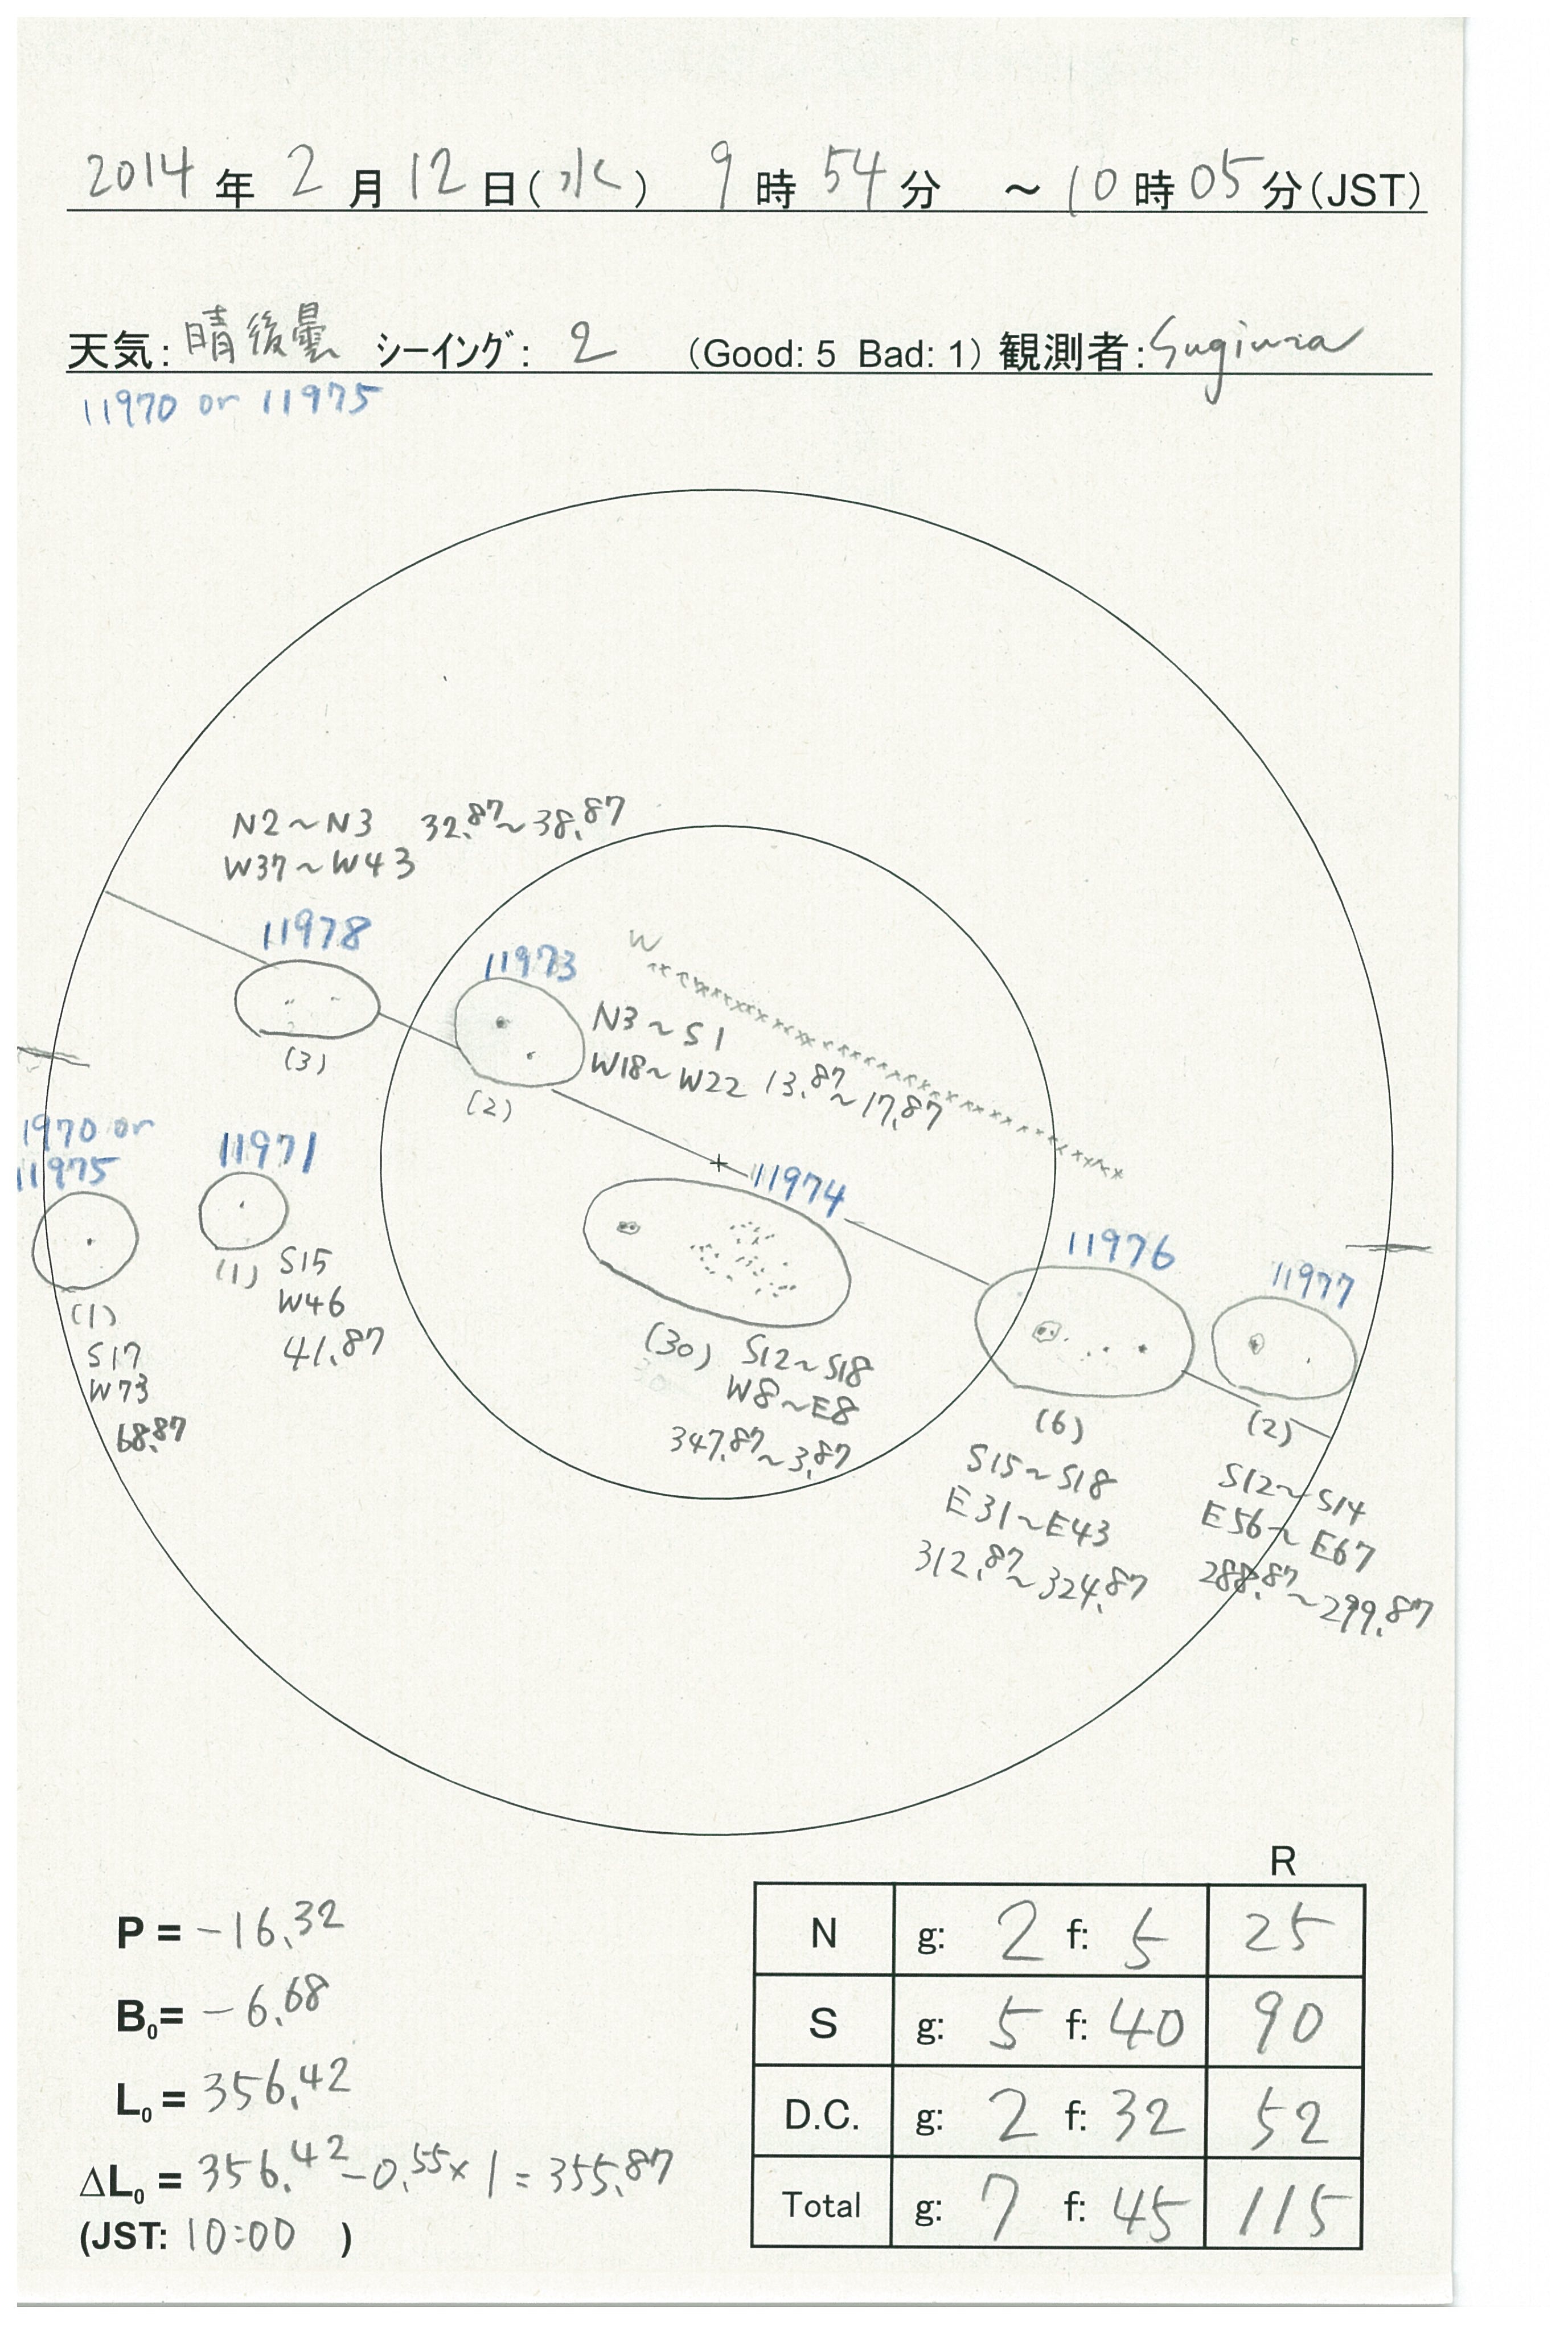 2014年 2月12日(水) 9時54分 ～10時05分(JST)
天気: 晴後曇 シーイング: 2 (Good: 5 Bad: 1) 観測者: Sugiura
11970 or 11975
N2～N3 32.87～38.87
W37～W43
11978
(3)
W
11973
N3～S1
W18～W22 13.87～17.87
(2)
1970 or
11975
(1)
S17
W73
68.87
11971
(1) S15
W46
41.87
11974
(30) S12～S18
W8～E8
347.87～3.87
11976
(6)
S15～S18
E31～E43
312.87～324.87
11977
(2)
S12～S14
E56～E67
288.87～299.87
P = -16.32
B0= -6.68
L0 = 356.42
ΔL0 = 356.42-0.55×1=355.87
(JST: 10:00 )
R
N g: 2 f: 5 25
S g: 5 f: 40 90
D.C. g: 2 f: 32 52
Total g: 7 f: 45 115